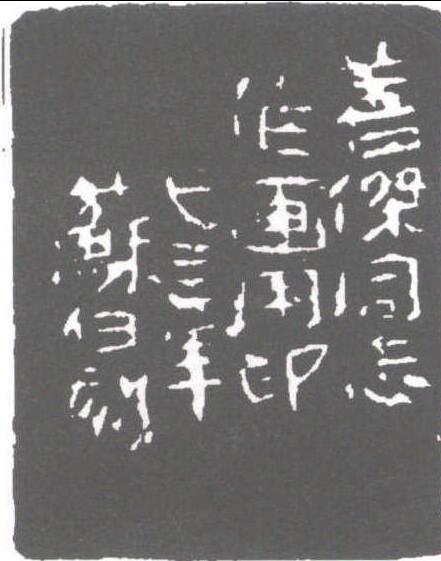 善傑同志
作画用印
七三年
蘇白刻